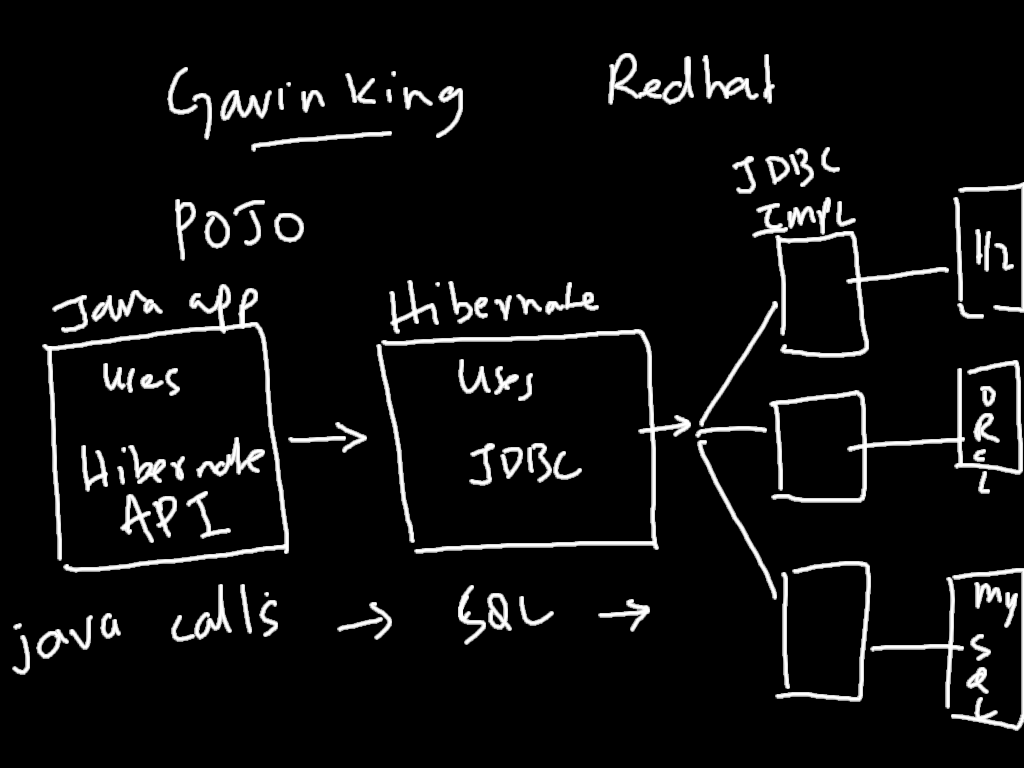 Gavin King
Redhat
POJO
JDBC
IMPL
Java app
Uses
Hibernate
API
Hibernate
Uses
JDBC
H2
ORCL
My
SQL
java calls → SQL →